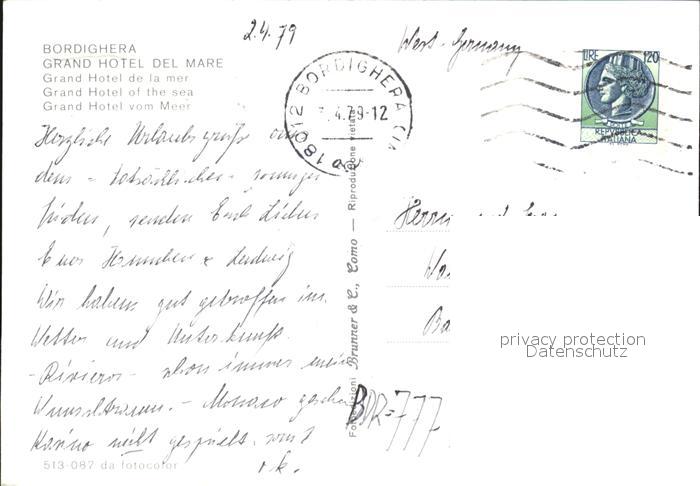 2.4.79
West-Germany
BORDIGHERA
GRAND HOTEL DEL MARE
Grand Hotel de la mer
Grand Hotel of the sea
Grand Hotel vom Meer
18012 BORDIGHERA (IM
.4.79-12
LIRE 120
POSTE
REPVBBLICA
ITALIANA
Herzliche Urlaubsgrüße aus
dem - tatsächlichen - sonnigen
Süden, senden Euch Lieben
Eure Hannchen & Ludwig
Wir haben gut getroffen im
Wetter und Unterkunft.
- Riviera - schon immer mein
Wunschtraum. - Monaco gesehen
Kasino nicht gespielt. sonst
o.k.
513-087 da fotocolor
Fotoedizioni Brunner & C., Como — Riproduzione vietata
Herrn und
BDR=777
privacy protection
Datenschutz